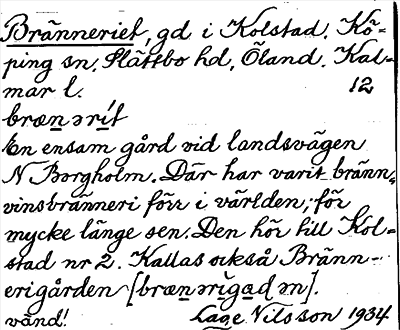 Bränneriet, gd i Kolstad. Kö-
ping sn. Slättbo hd, Öland. Kal-
mar l. 12
bræn̲ərít
En ensam gård vid landsvägen
N Borgholm. Där har varit bränn-
vinsbränneri förr i världen, för
mycke länge sen. Den hör till Kol-
stad nr 2. Kallas också Bränn-
erigården [bræn̲ərīga̲ɖən].
vänd! Lage Nilsson 1934